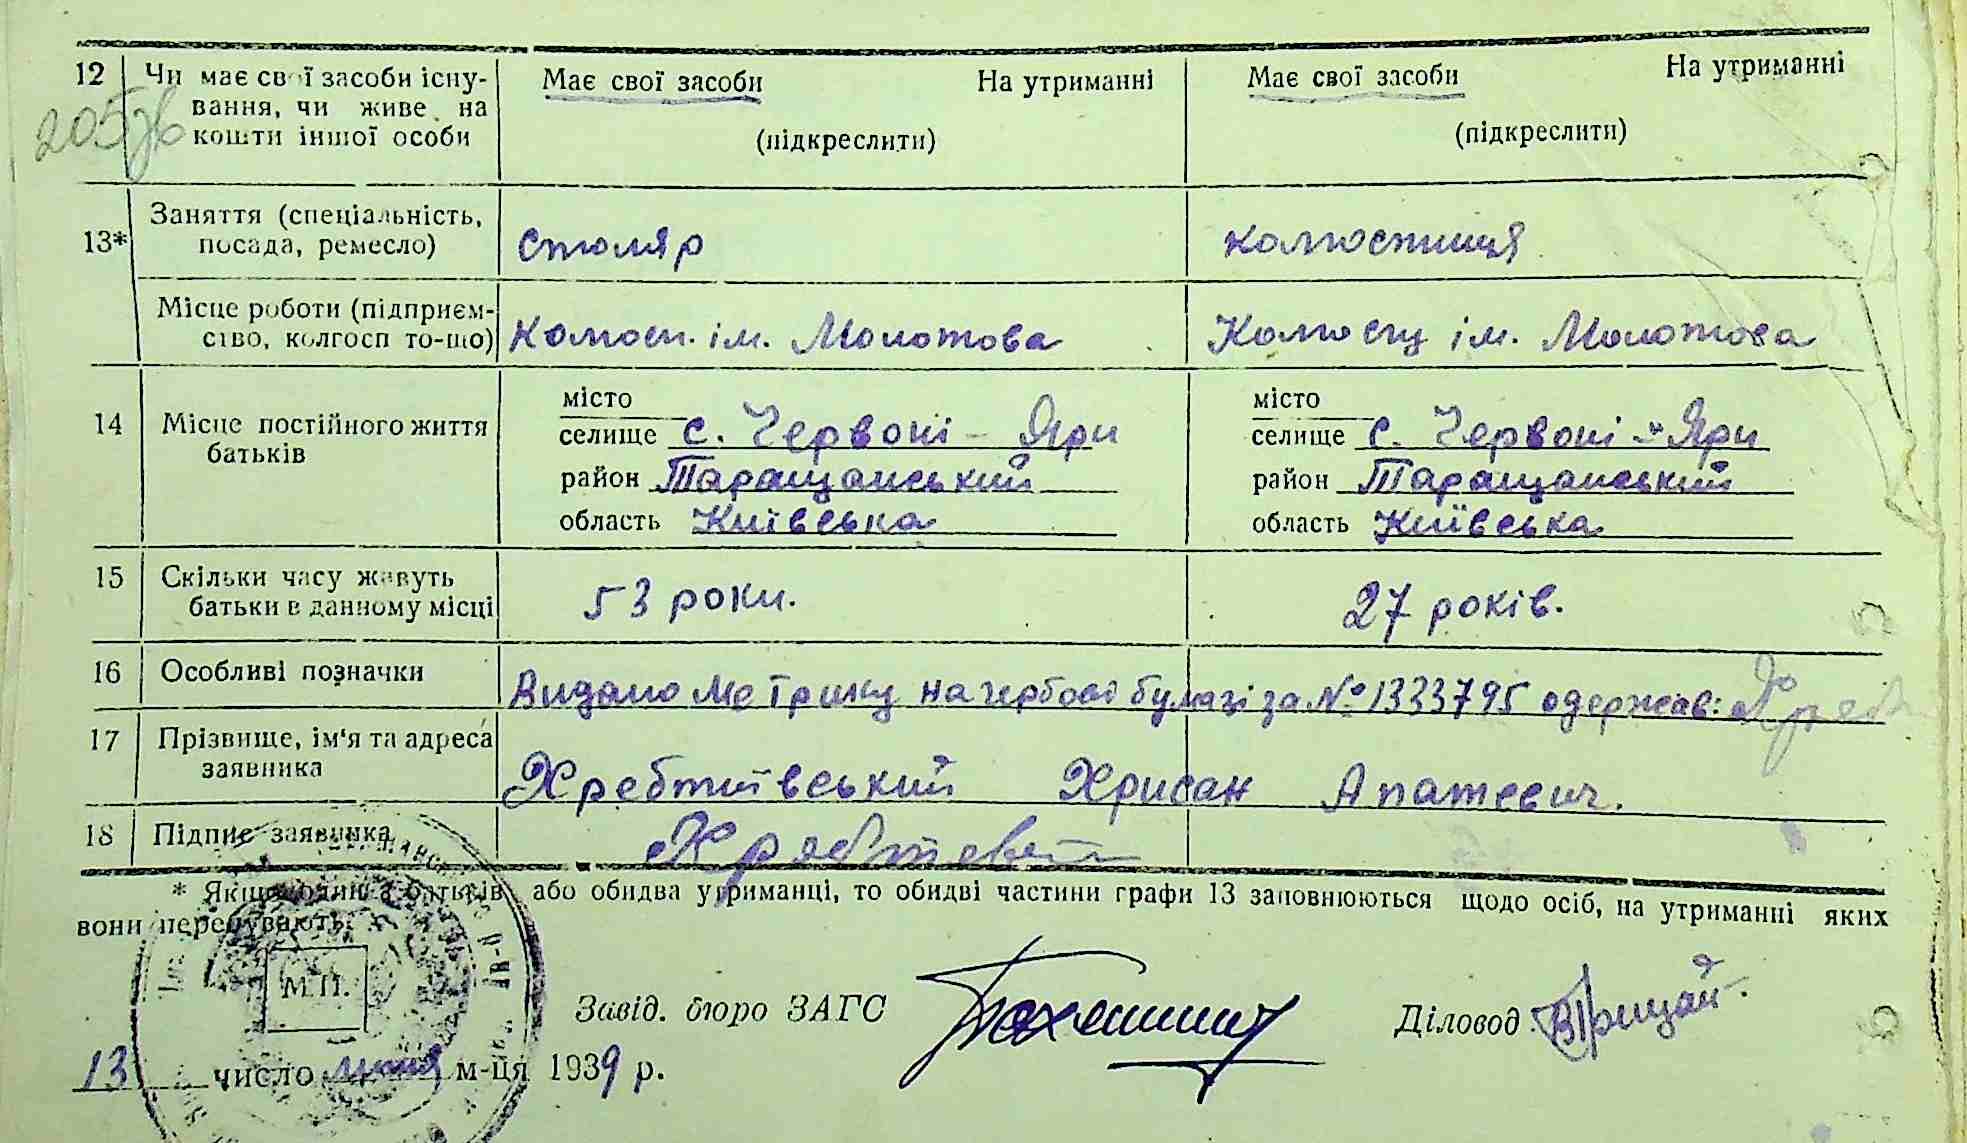 12 Чи має свої засоби існу- Має свої засоби На утриманні Має свої засоби На утриманні
вання, чи живе на
кошти іншої особи (підкреслити) (підкреслити)
205
Заняття (спеціальність,
13* посада, ремесло) столяр колгоспниця
Місце роботи (підприєм-
ство, колгосп то-що) Колгосп. ім. Молотова Колгосп ім. Молотова
місто місто
14 Місце постійного життя селище с. Червоні - Яри селище с. Червоні - Яри
батьків район Таращанський район Таращанський
область Київська область Київська
15 Скільки часу живуть
батьки в данному місці 53 роки. 27 років.
16 Особливі позначки Видано метрику на гербові бумазі за № 1333795 одержав:
17 Прізвище, ім'я та адреса
заявника Хребтиївський Хрисан Апатевич.
18 Підпис заявника
* Якщо один з батьків або обидва утриманці, то обидві частини графи 13 заповнюються щодо осіб, на утриманні яких
вони перебувають.
М.П.
Завід. бюро ЗАГС Діловод
13 число м-ця 1939 р.